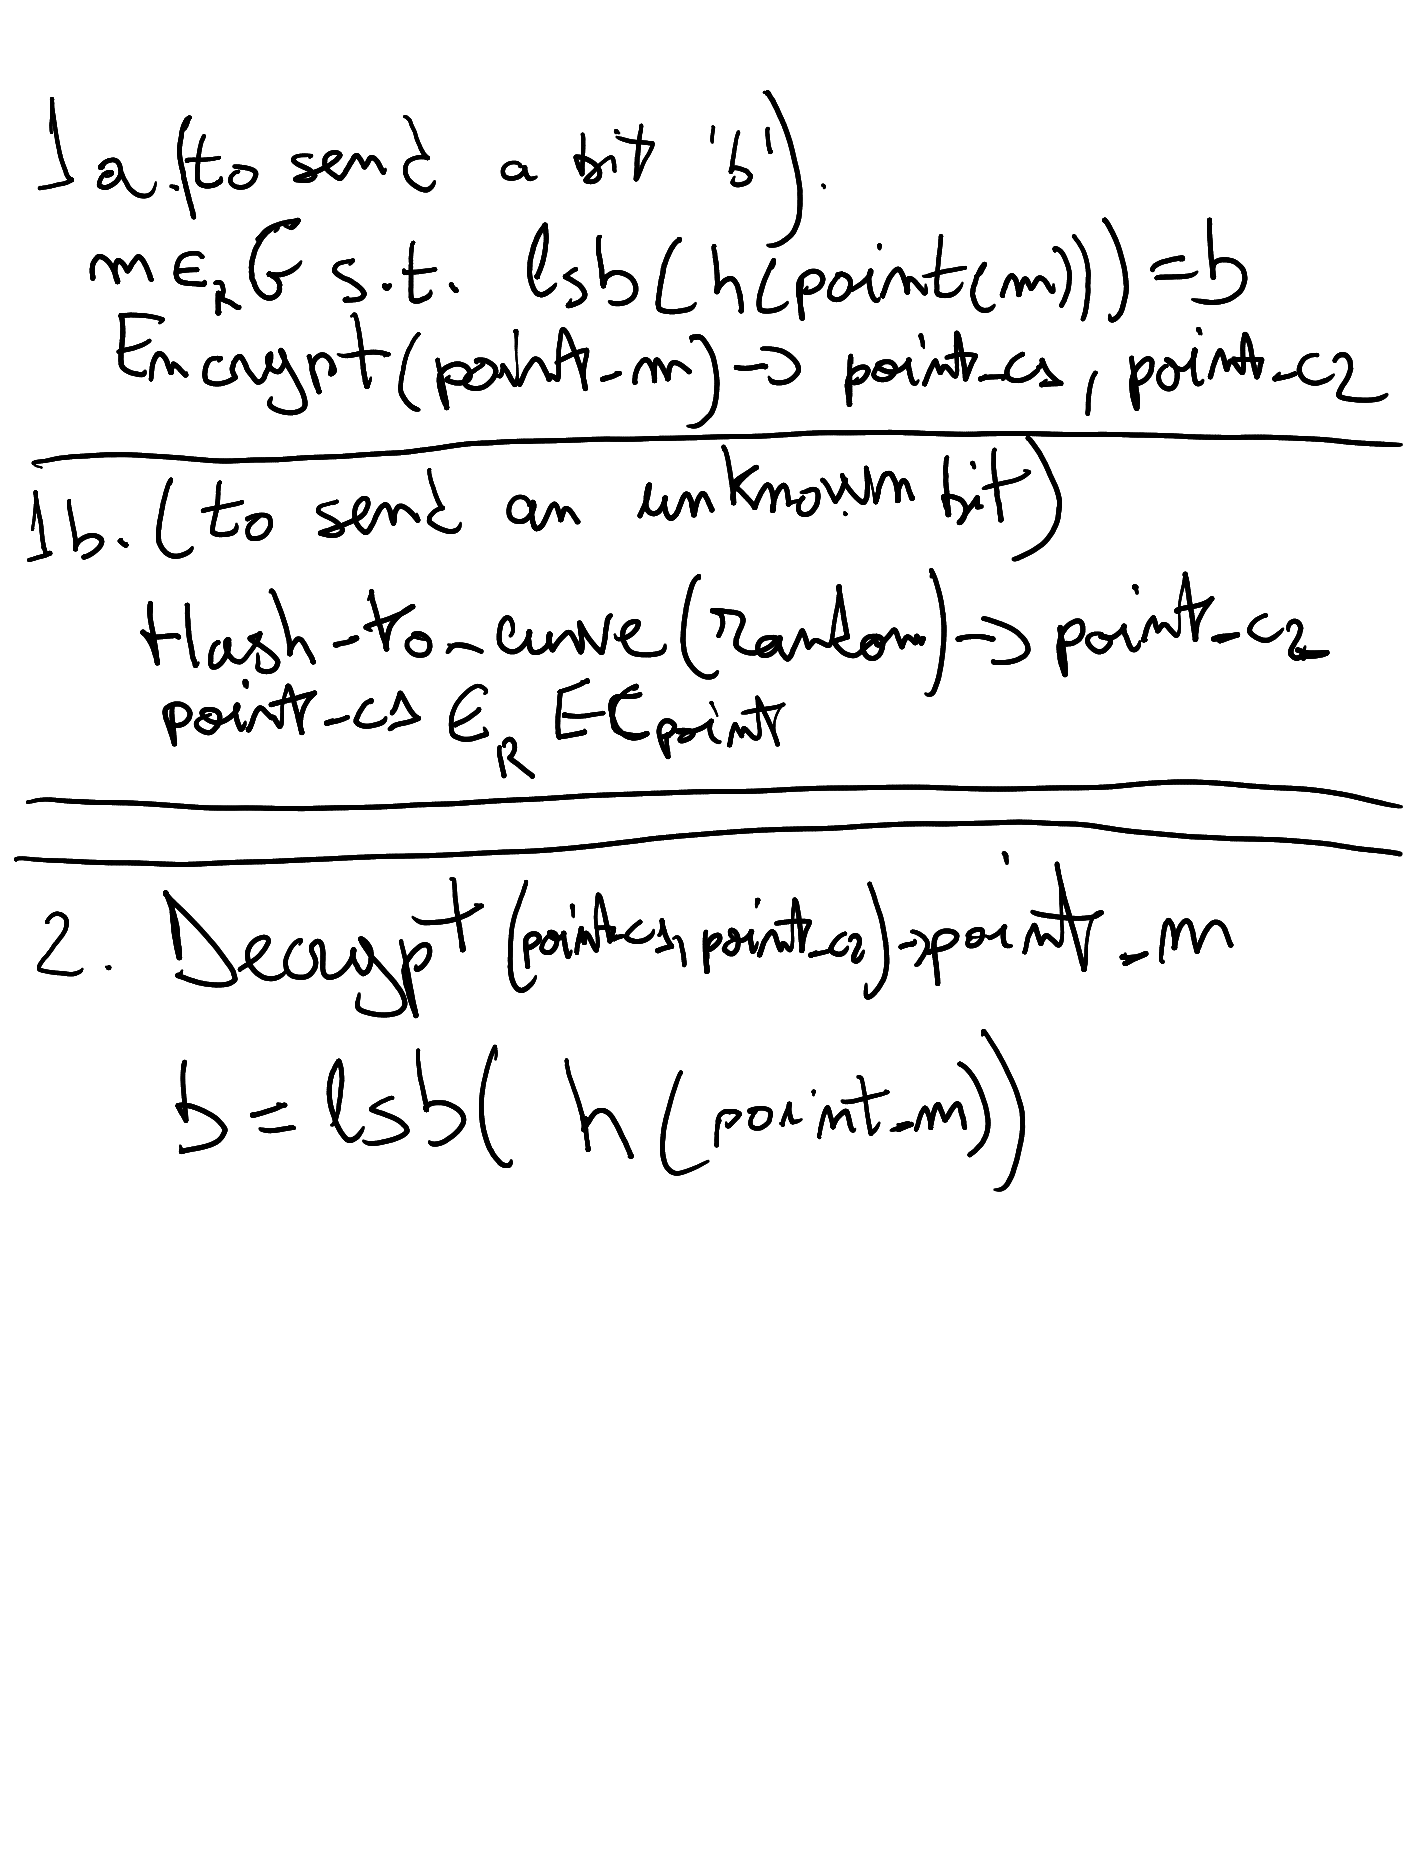 1a. (to send a bit 'b').
m ∈_R G s.t. lsb(h(point(m))) = b
Encrypt(point_m) → point_c1, point_c2
1b. (to send an unknown bit)
Hash_to_curve(random) → point_c2
point_c1 ∈_R EC point
2. Decrypt(point_c1, point_c2) → point_m
b = lsb(h(point_m))